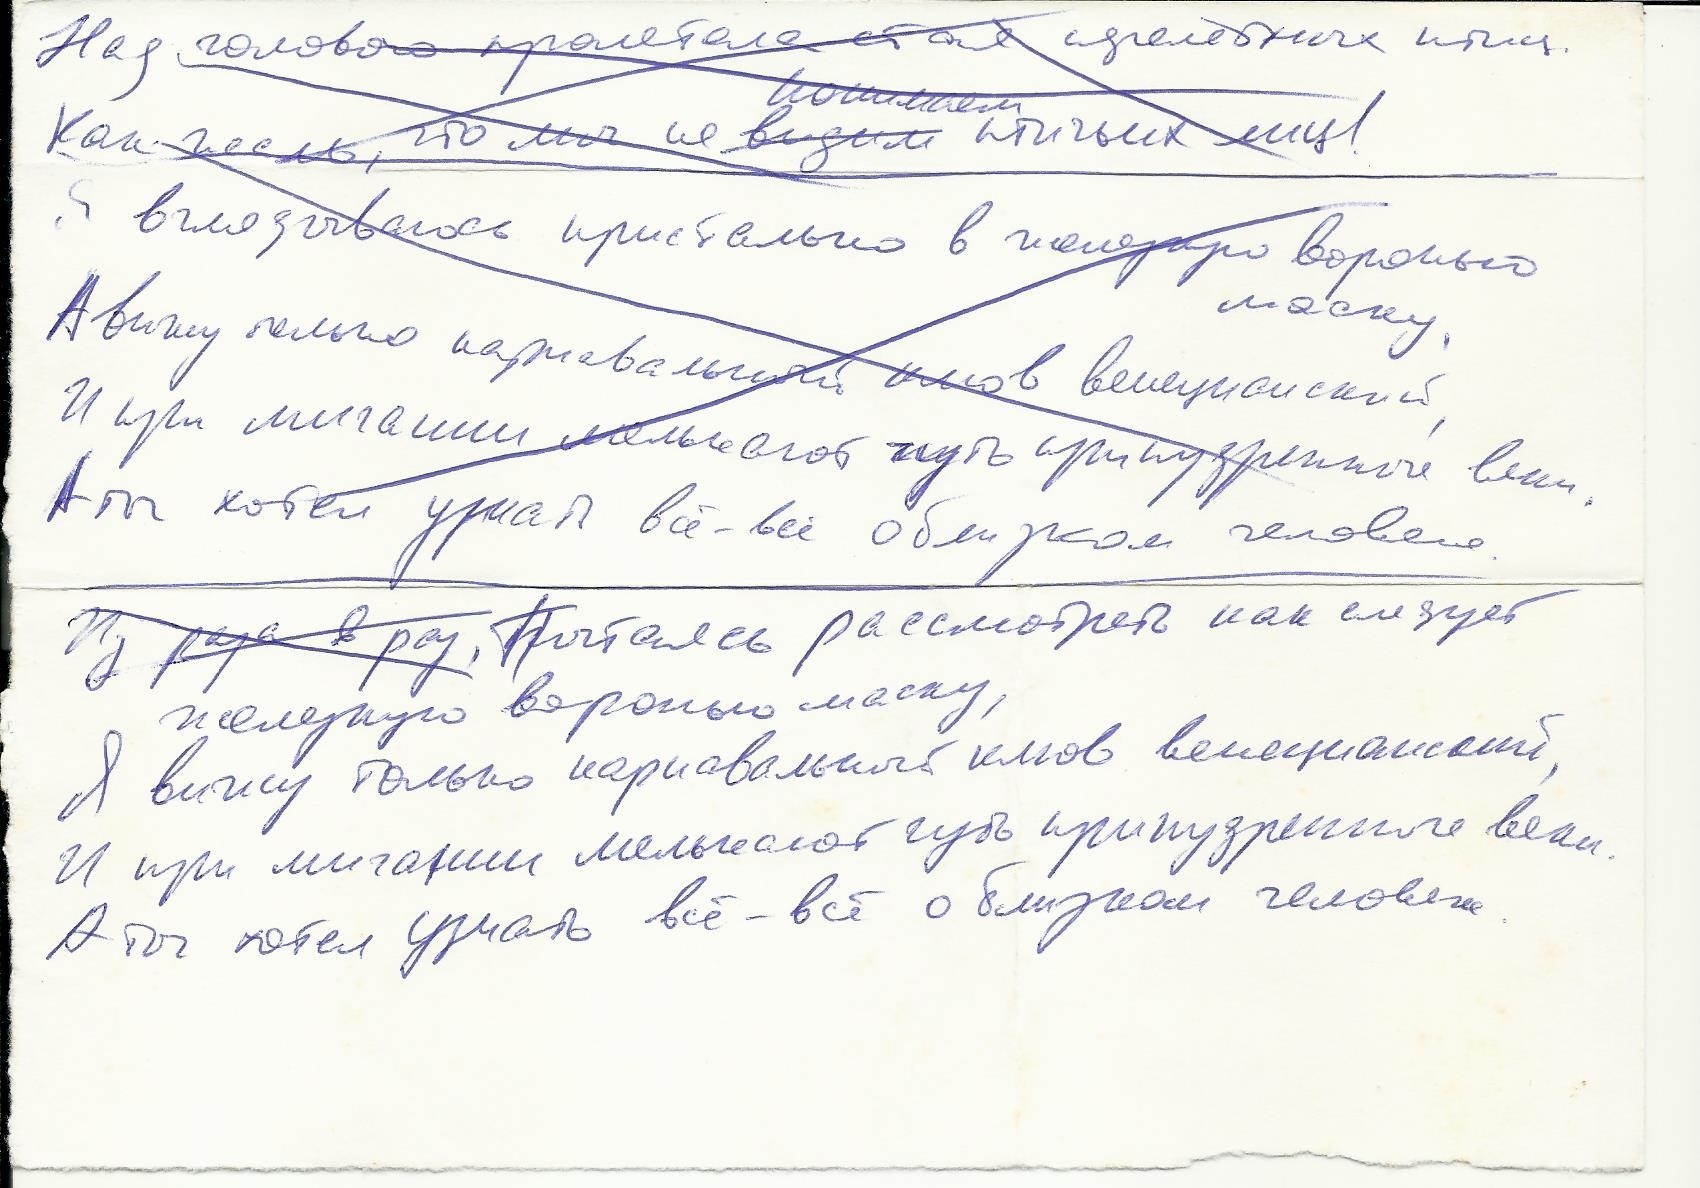 Над головою пролетала стая перелётных птиц.
понимаем
Как жаль, что мы не видим птичьих лиц!
Я вглядываюсь пристально в железную воронью
маску,
А вижу только карнавальный клюв венецианский,
И при мигании мелькают чуть припудренные веки.
А ты хотел узнать всё-всё о близком человеке.
Из раза в раз, Пытаясь рассмотреть как следует
железную воронью маску,
Я вижу только карнавальный клюв венецианский,
И при мигании мелькают чуть припудренные веки.
А ты хотел узнать всё-всё о близком человеке.